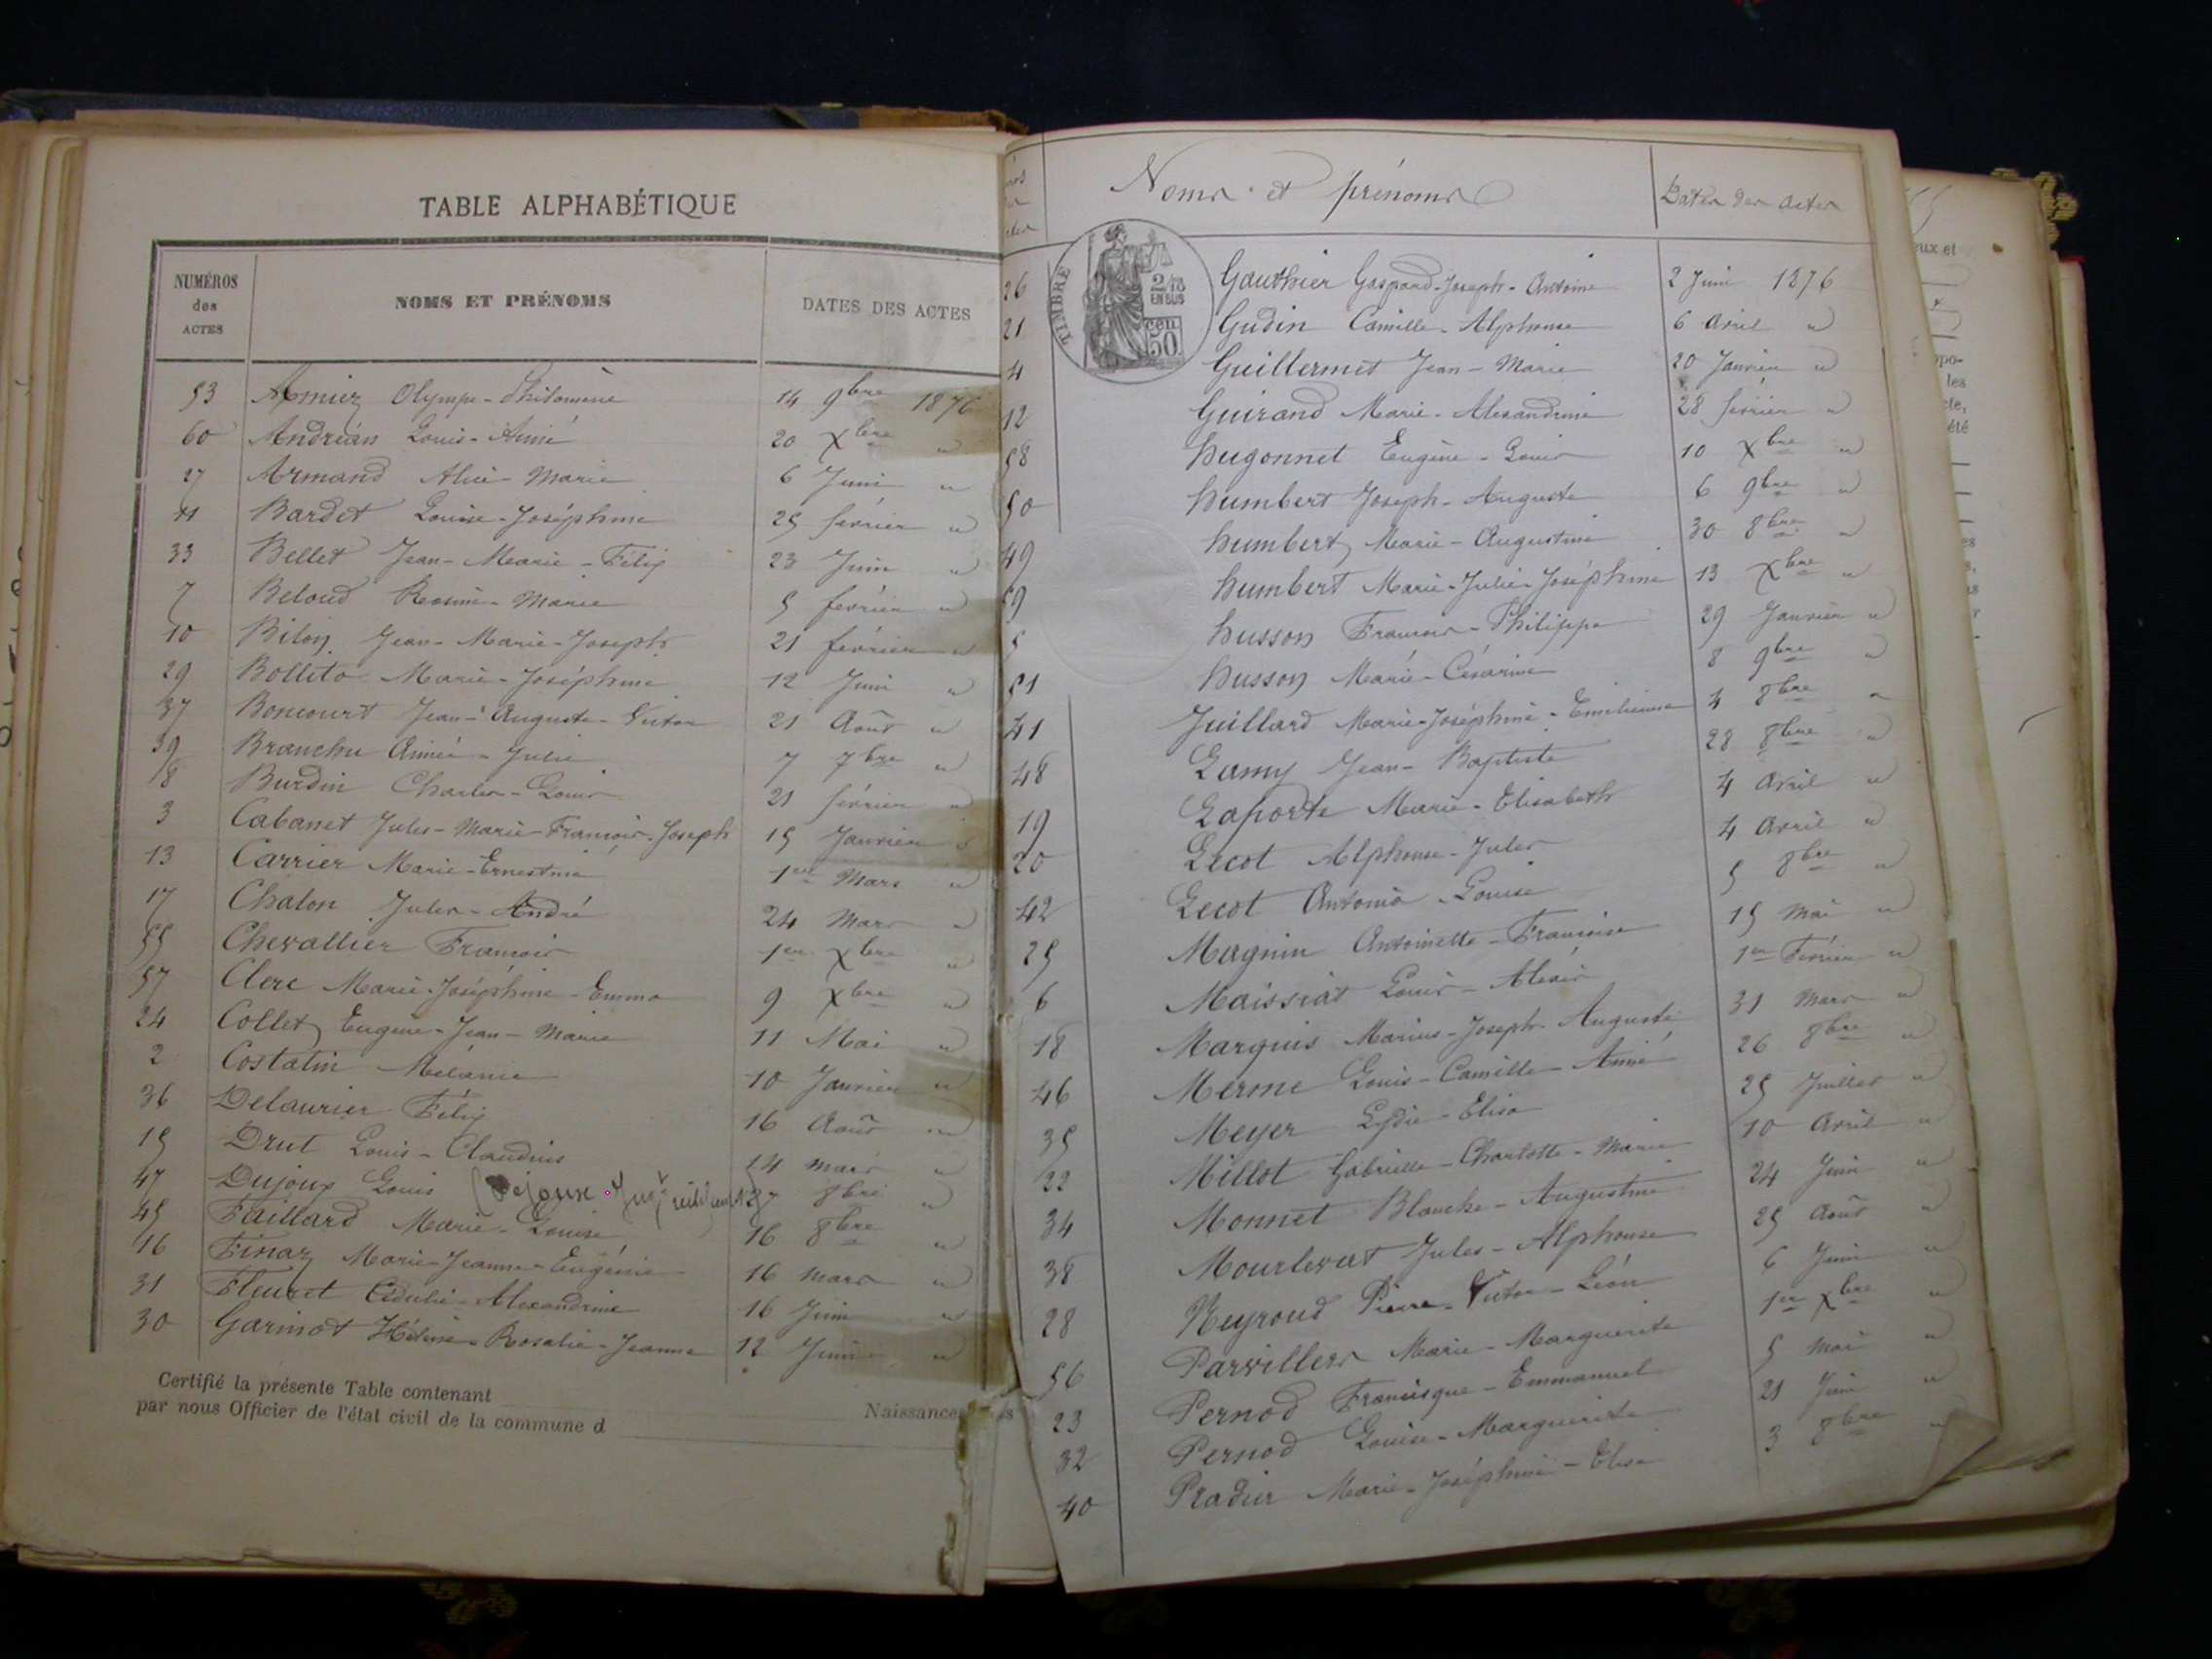 TABLE ALPHABÉTIQUE
NUMÉROS des ACTES NOMS ET PRÉNOMS DATES DES ACTES
53 Amiez Olympe-Philomène 14 9bre 1876
60 Andréan Louis-Aimé 20 Xbre "
27 Armand Alice-Marie 6 Juin "
11 Bardet Louise-Joséphine 25 février "
33 Bellet Jean-Marie-Félix 23 Juin "
7 Beloud Rosine-Marie 5 février "
10 Bilon Jean-Marie-Joseph 21 février "
29 Bollito Marie-Joséphine 12 Juin "
37 Boncourt Jean-Auguste-Victor 21 Août "
39 Branchu Aimée-Julie 7 7bre "
8 Burdin Charles-Louis 21 février "
3 Cabanet Jules-Marie-François-Joseph 15 Janvier "
13 Carrier Marie-Ernestine 1er Mars "
17 Chalon Jules-André 24 Mars "
55 Chevallier François 1er Xbre "
57 Clerc Marie-Joséphine-Emma 9 Xbre "
24 Collet Eugène-Jean-Marie 11 Mai "
2 Costatin Mélanie 10 Janvier "
36 Delaurier Félix 16 Août "
15 Drut Louis-Claudius 14 mars "
47 Dujoux Louis (Dejoux 27 8bre "
45 Faillard Marie-Louise 16 8bre "
16 Finaz Marie-Jeanne-Eugénie 16 mars "
31 Fleuret Alexandrine 16 Juin "
30 Garinot Hélène-Rosalie-Jeanne 12 Juin "
Certifié la présente Table contenant Naissances
par nous Officier de l'état civil de la commune d
Noms et prénoms Dates des actes
TIMBRE
2/10
EN SUS
50
26 Gauthier Gaspard-Joseph-Antoine 2 Juin 1876
21 Gudin Camille-Alphonse 6 avril "
4 Guillermet Jean-Marie 20 Janvier "
12 Guirand Marie-Alexandrine 28 février "
58 Hugonnet Eugène-Louis 10 Xbre "
50 Humbert Joseph-Auguste 6 9bre "
49 Humbert Marie-Augustine 30 8bre "
59 Humbert Marie-Julie-Joséphine 13 Xbre "
5 Husson François-Philippe 29 Janvier "
51 Husson Marie-Césarine 8 9bre "
41 Juillard Marie-Joséphine-Emilienne 4 8bre "
48 Lamy Jean-Baptiste 28 8bre "
19 Laporte Marie-Elisabeth 4 avril "
20 Lecot Alphonse-Jules 4 avril "
42 Lecot Antonia-Louise 5 8bre "
25 Magnin Antoinette-Françoise 15 mai "
6 Maissiat Louis-Alexis 1er Février "
18 Marquis Marius-Joseph-Auguste 31 Mars "
46 Merme Louis-Camille-Aimé 26 8bre "
35 Meyer Lydie-Elisa 25 Juillet "
22 Millot Gabrielle-Charlotte-Marie 10 avril "
34 Monnet Blanche-Augustine 24 Juin "
38 Mourlevat Jules-Alphonse 25 Août "
28 Neyroud Pierre-Victor-Léon 6 Juin "
56 Parvillers Marie-Marguerite 1er Xbre "
23 Pernod Francisque-Emmanuel 5 mai "
32 Pernod Louise-Marguerite 21 Juin "
40 Pradier Marie-Joséphine-Elisa 3 8bre "